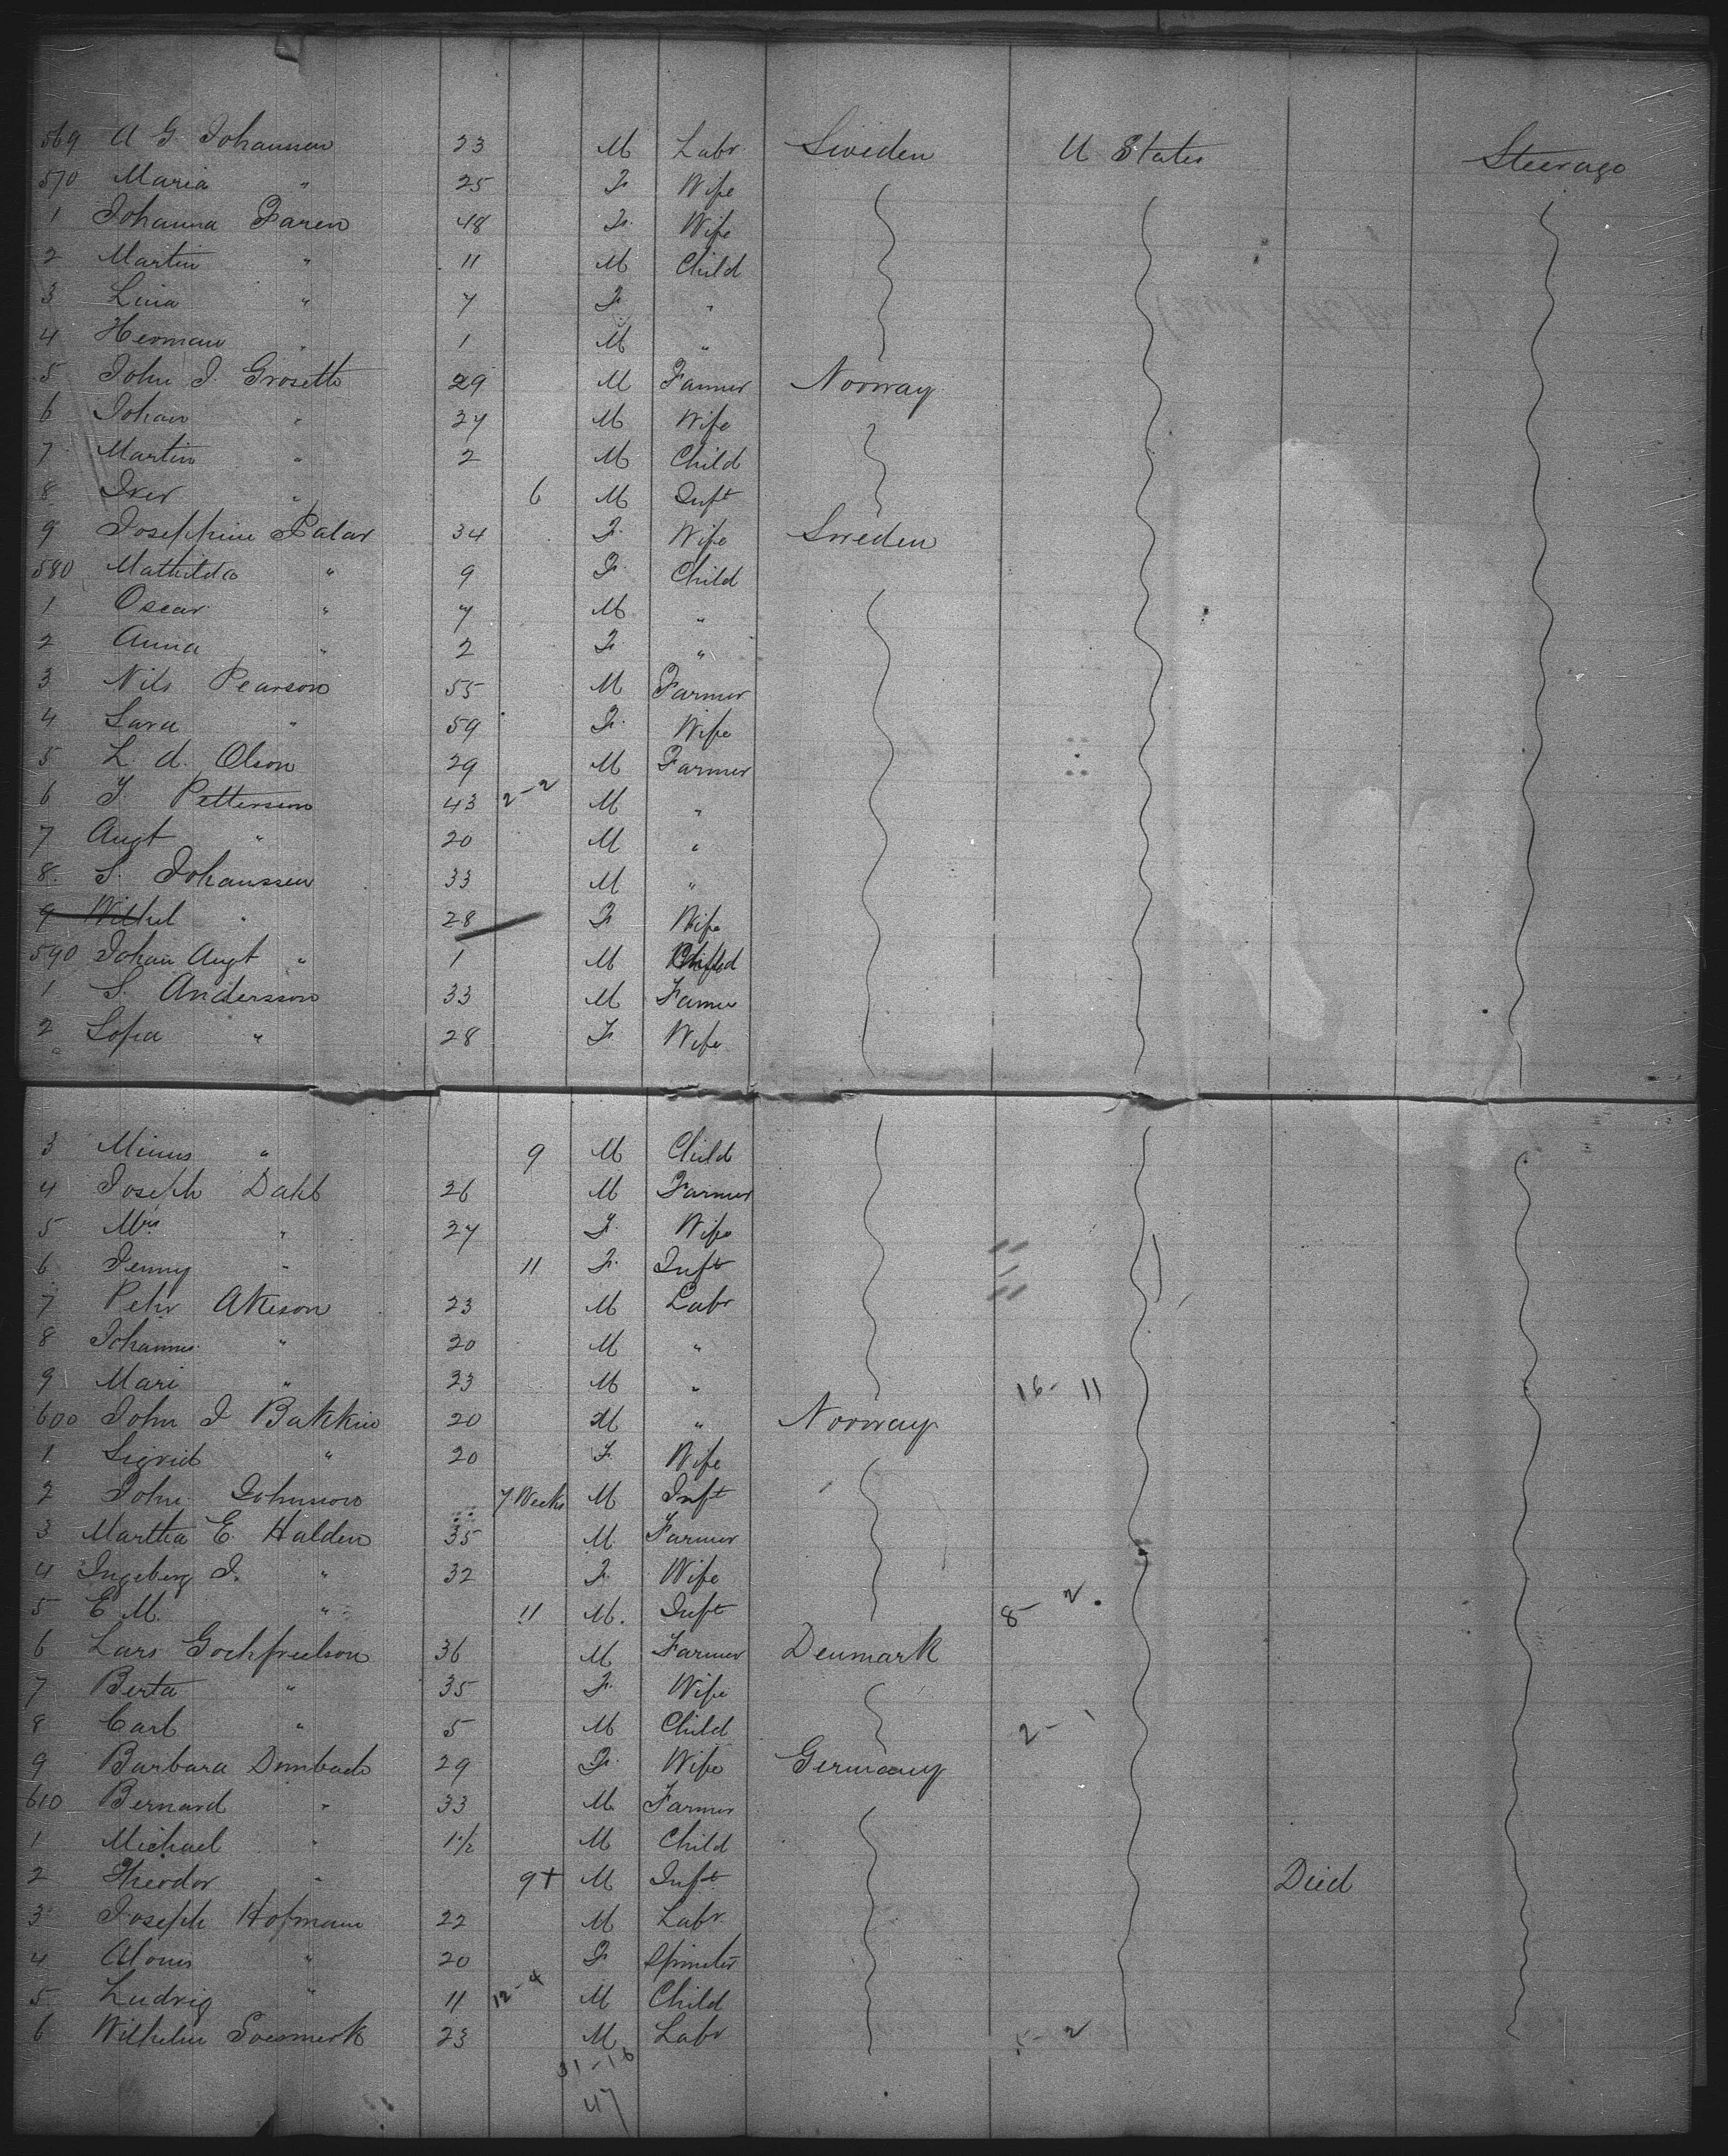 569 A G Johanssen 23 M Labr Sweden U States Steerage
570 Maria " 25 F Wife
1 Johanna Faren 48 F. Wife
2 Martin " 11 M Child
3 Lina " 7 F "
4 Herman " 1 M "
5 John J. Grosette 29 M Farmer Norway
6 Johan " 27 M Wife
7 Martin " 2 M Child
8 Iver " 6 M Inft
9 Josephine Palar 34 F. Wife Sweden
580 Mathilda " 9 F. Child
1 Oscar " 7 M "
2 Anna " 2 F. "
3 Nils Pearson 55 M Farmer
4 Sara " 59 F. Wife
5 L. A. Olson 29 M Farmer
6 J Petterson 43 2-2 M "
7 Augt " 20 M "
8 S. Johanssen 33 M "
9 " 28 F Wife
590 Johan Augt " 1 M Child
1 S. Andersson 33 M Farmer
2 Sofia " 28 F Wife
3 Minus " 9 M Child
4 Joseph Dahl 26 M Farmer
5 Mrs " 27 F. Wife
6 Jenny " 11 F. Inft
7 Pehr Akeson 23 M Labr
8 Johannes " 20 M "
9 Mari " 23 M " 16-11
600 John J Bakkin 20 M " Norway
1 Sigrid " 20 F. Wife
2 John Johnson 7 Weeks M Inft
3 Martha E. Halden 35 M. Farmer
4 Ingeberg J. " 32 F. Wife
5 E M. " 11 M. Inft 8-2
6 Lars 36 M Farmer Denmark
7 Berta " 35 F. Wife
8 Carl " 5 M Child 2-1
9 Barbara Dumbach 29 F. Wife Germany
610 Bernard " 33 M Farmer
1 Michael " 1½ M Child
2 Theodor " 9+ M Inft Died
3 Joseph Hofmann 22 M Labr
4 Alouis " 20 F Spinster
5 Ludvig " 11 12-4 M Child
6 Wilhelm 23 M Labr 5-2
31-16
47